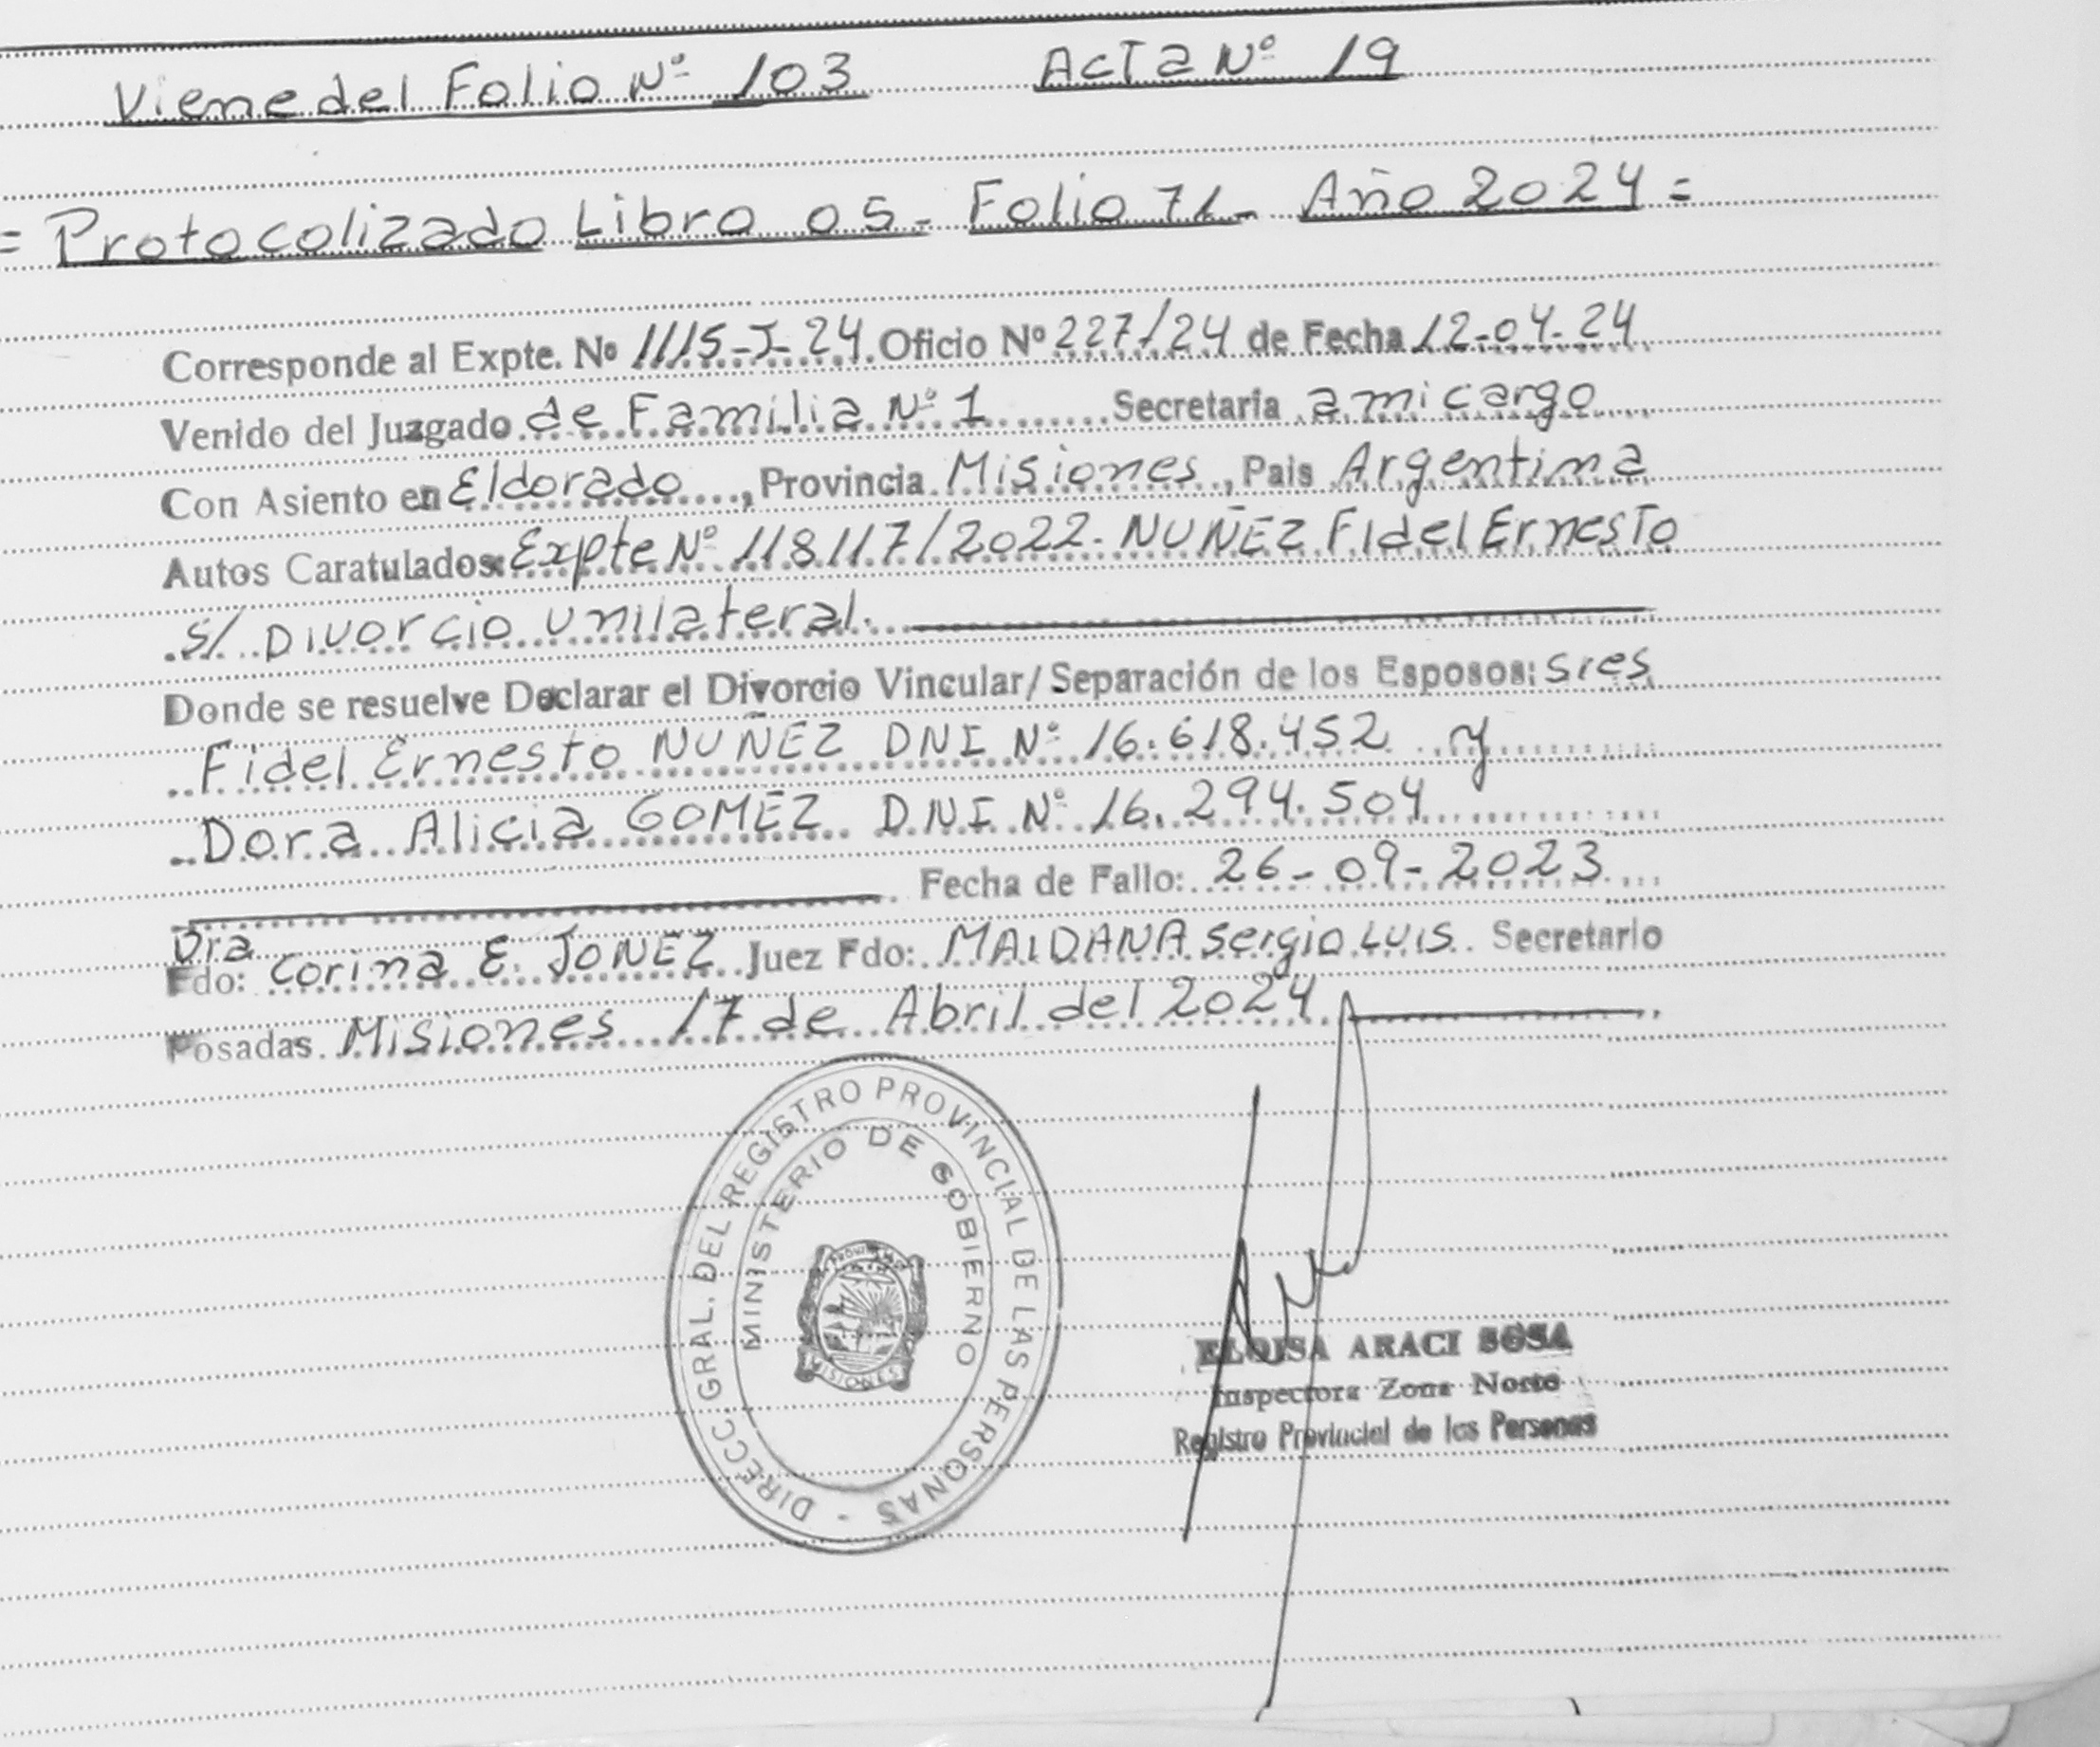 Viene del Folio Nº 103 Acta Nº 19
= Protocolizado Libro 05- Folio 71- Año 2024 =
Corresponde al Expte. Nº 1115-J-24 Oficio Nº 227/24 de Fecha 12-04-24
Venido del Juzgado de Familia Nº 1 Secretaria a mi cargo
Con Asiento en Eldorado, Provincia Misiones, Pais Argentina
Autos Caratulados: Expte Nº 118117/2022. NUÑEZ Fidel Ernesto
S/ Divorcio Unilateral.
Donde se resuelve Declarar el Divorcio Vincular/ Separación de los Esposos: Sres
Fidel Ernesto NUÑEZ DNI Nº 16.618.452 y
Dora Alicia GOMEZ DNI Nº 16.294.504
Fecha de Fallo: 26-09-2023
Dra
Fdo: Corina E. JONEZ Juez Fdo: MAIDANA Sergio Luis Secretario
Posadas Misiones 17 de Abril del 2024
DIRECC. GRAL. DEL REGISTRO PROVINCIAL DE LAS PERSONAS -
MINISTERIO DE GOBIERNO
MISIONES
ELOISA ARACI SOSA
Inspectora Zona Norte
Registro Provincial de las Personas